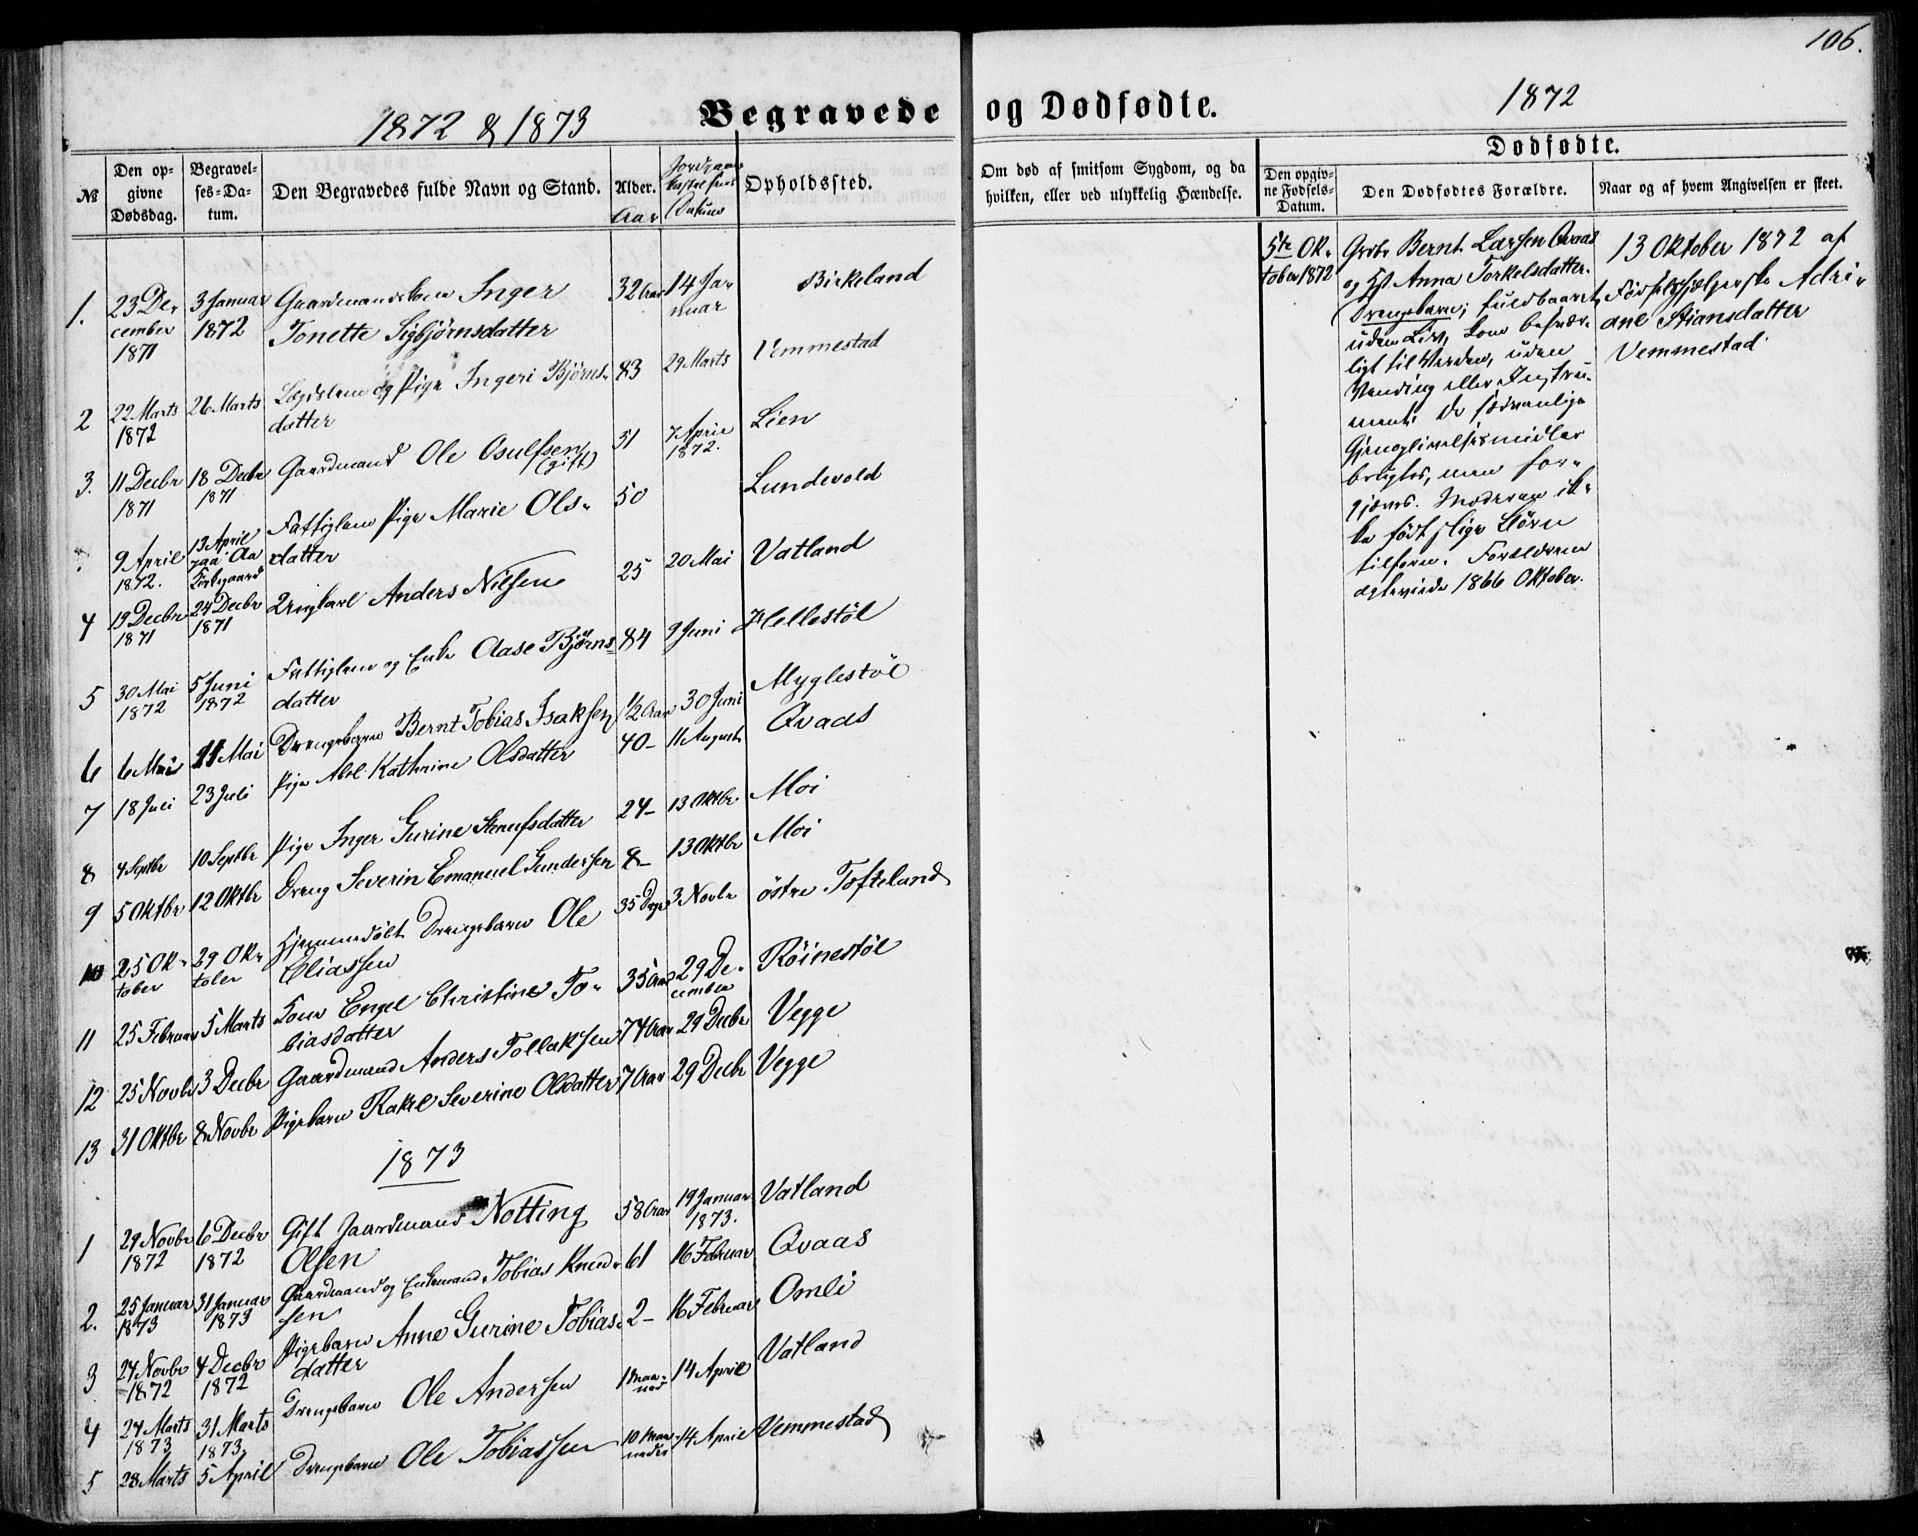 106.
1872 & 1873
Begravede og Dødfødte.
1872
Dødfødte.
№
Den opgivne Dødsdag.
Begravelses-Datum.
Den Begravedes fulde Navn og Stand.
Alder. Aar
Jordpaakastelsens Datum
Opholdssted.
Om død af smitsom Sygdom, og da hvilken, eller ved ulykkelig Hændelse.
Den opgivne Fødsels-Datum.
Den Dødfødtes Forældre.
Naar og af hvem Angivelsen er skeet.
1. 23 December 1871 3 Januar 1872 Gaardmandskone Inger Tonette Sigbjørnsdatter 32 Aar 14 Januar Birkeland
2 22 Marts 1872 26 Marts Lægdslem og Pige Ingeri Bjørnsdatter 83 29 Marts Vemmestad
3. 11 Decbr 1871 18 Decbr 1871 Gaardmand Ole Osulfsen (gift) 51 7 April 1872. Lien
9 April 1872. 13 April paa Aa Kirkegaard Fattiglem Pige Marie Olsdatter 50 Lundevold
4 19 Decbr 1871 24 Decbr 1871 Ungkarl Anders Nilsen 25 20 Mai Vatland
5 30 Mai 1872 5 Juni 1872 Fattiglem og Enke Aase Bjørnsdatter 84 9 Juni Hellestøl
6 6 Mai 11 Mai Drengebarn Bernt Tobias Isaksen 1/2 Aar 30 Juni Myglestøl
7 18 Juli 23 Juli Pige Abel Kathrine Olsdatter 40 - 11 August Qvaas
8 4 Septbr 10 Septbr Pige Inger Gurine Stenufsdatter 24 - 13 Oktbr Moi
9 5 Oktbr 12 Oktbr Dreng Severin Emanuel Gundersen 8 - 13 Oktbr Moi
10 25 Oktober 29 Oktober Hjemmedøbt Drengebarn Ole Eliassen 35 Dage 3 Novbr østre Tofteland
11 25 Februar 5 Marts Kone Engel Christine Tobiasdatter 35 Aar 29 December Røinestøl
12 25 Novbr 3 Decbr Gaardmand Anders Tollaksen 74 Aar 29 Decbr Vegge
13 31 Oktbr 8 Novbr Pigebarn Rakel Severine Olsdatter 7 Aar 29 Decbr Vegge
1873
1 29 Novbr 1872 6 Decbr 1872 Gift Gaardmand Notting Olsen 58 Aar 19 Januar 1873. Vatland
2. 25 Januar 1873 31 Januar 1873 Gaardmand og Enkemand Tobias Knudsen 61 16 Februar Qvaas
3 24 Novbr 1872 4 Decbr 1872 Pigebarn Anne Gurine Tobiasdatter 2 - 16 Februar Omli
4 24 Marts 1873 31 Marts 1873. Drengebarn Ole Andersen 1 Maaned 14 April Vatland
5 28 Marts 5 April Drengebarn Ole Tobiassen 10 Maaneder 14 April Vemmestad
5te Oktober 1872
Grdbr Bernt Larsen Qvaas
og Anna Torkelsdatter.
Drengebarn; fuldbaaret,
uden Liv, kom besvær-
ligt til Verden, uden
Vending eller Instru-
ment. De sædvanlige
Gjenoplivelsesmidler
brugtes, men for-
gjæves. Moderen ik-
ke født slige Børn
tilforn. Forældrene
ægteviede 1866 Oktober.
13 Oktober 1872 af
Fødselshjælperske Adri-
ane Stiansdatter
Vemmestad